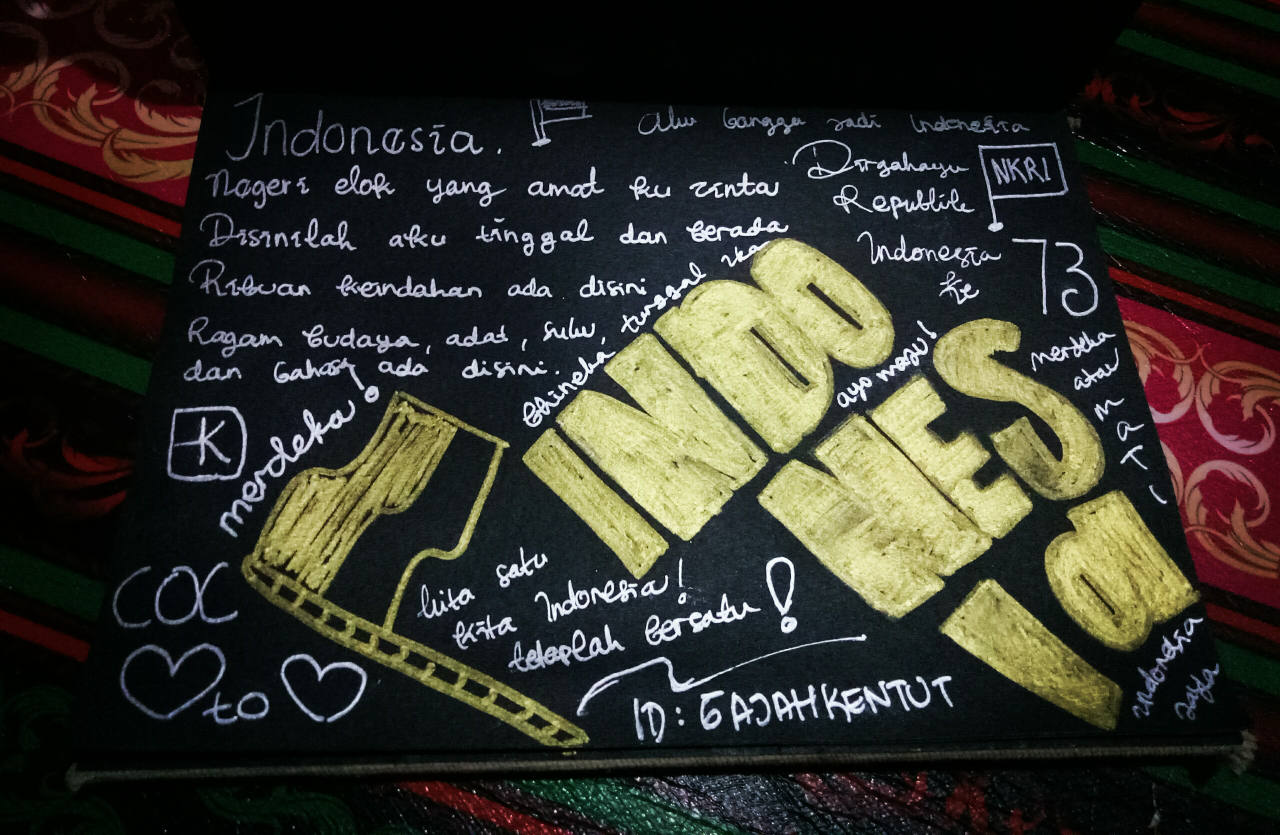 Indonesia.
Aku bangga jadi Indonesia
Nageri elok yang amat ku cinta
Disinilah aku tinggal dan berada
Ribuan keindahan ada disini
Ragam budaya, adat, suku,
dan bahasa ada disini.
Dirgahayu
Republik
Indonesia
ke 73
NKRI
Bhineka tunggal ika
INDO
NES
Ia
ayo maju!
merdeka
atau
MATI
K
merdeka!
COC
to
kita satu
kita Indonesia!
tetaplah bersatu!
ID: GAJAHKENTUT
Indonesia
Jaya